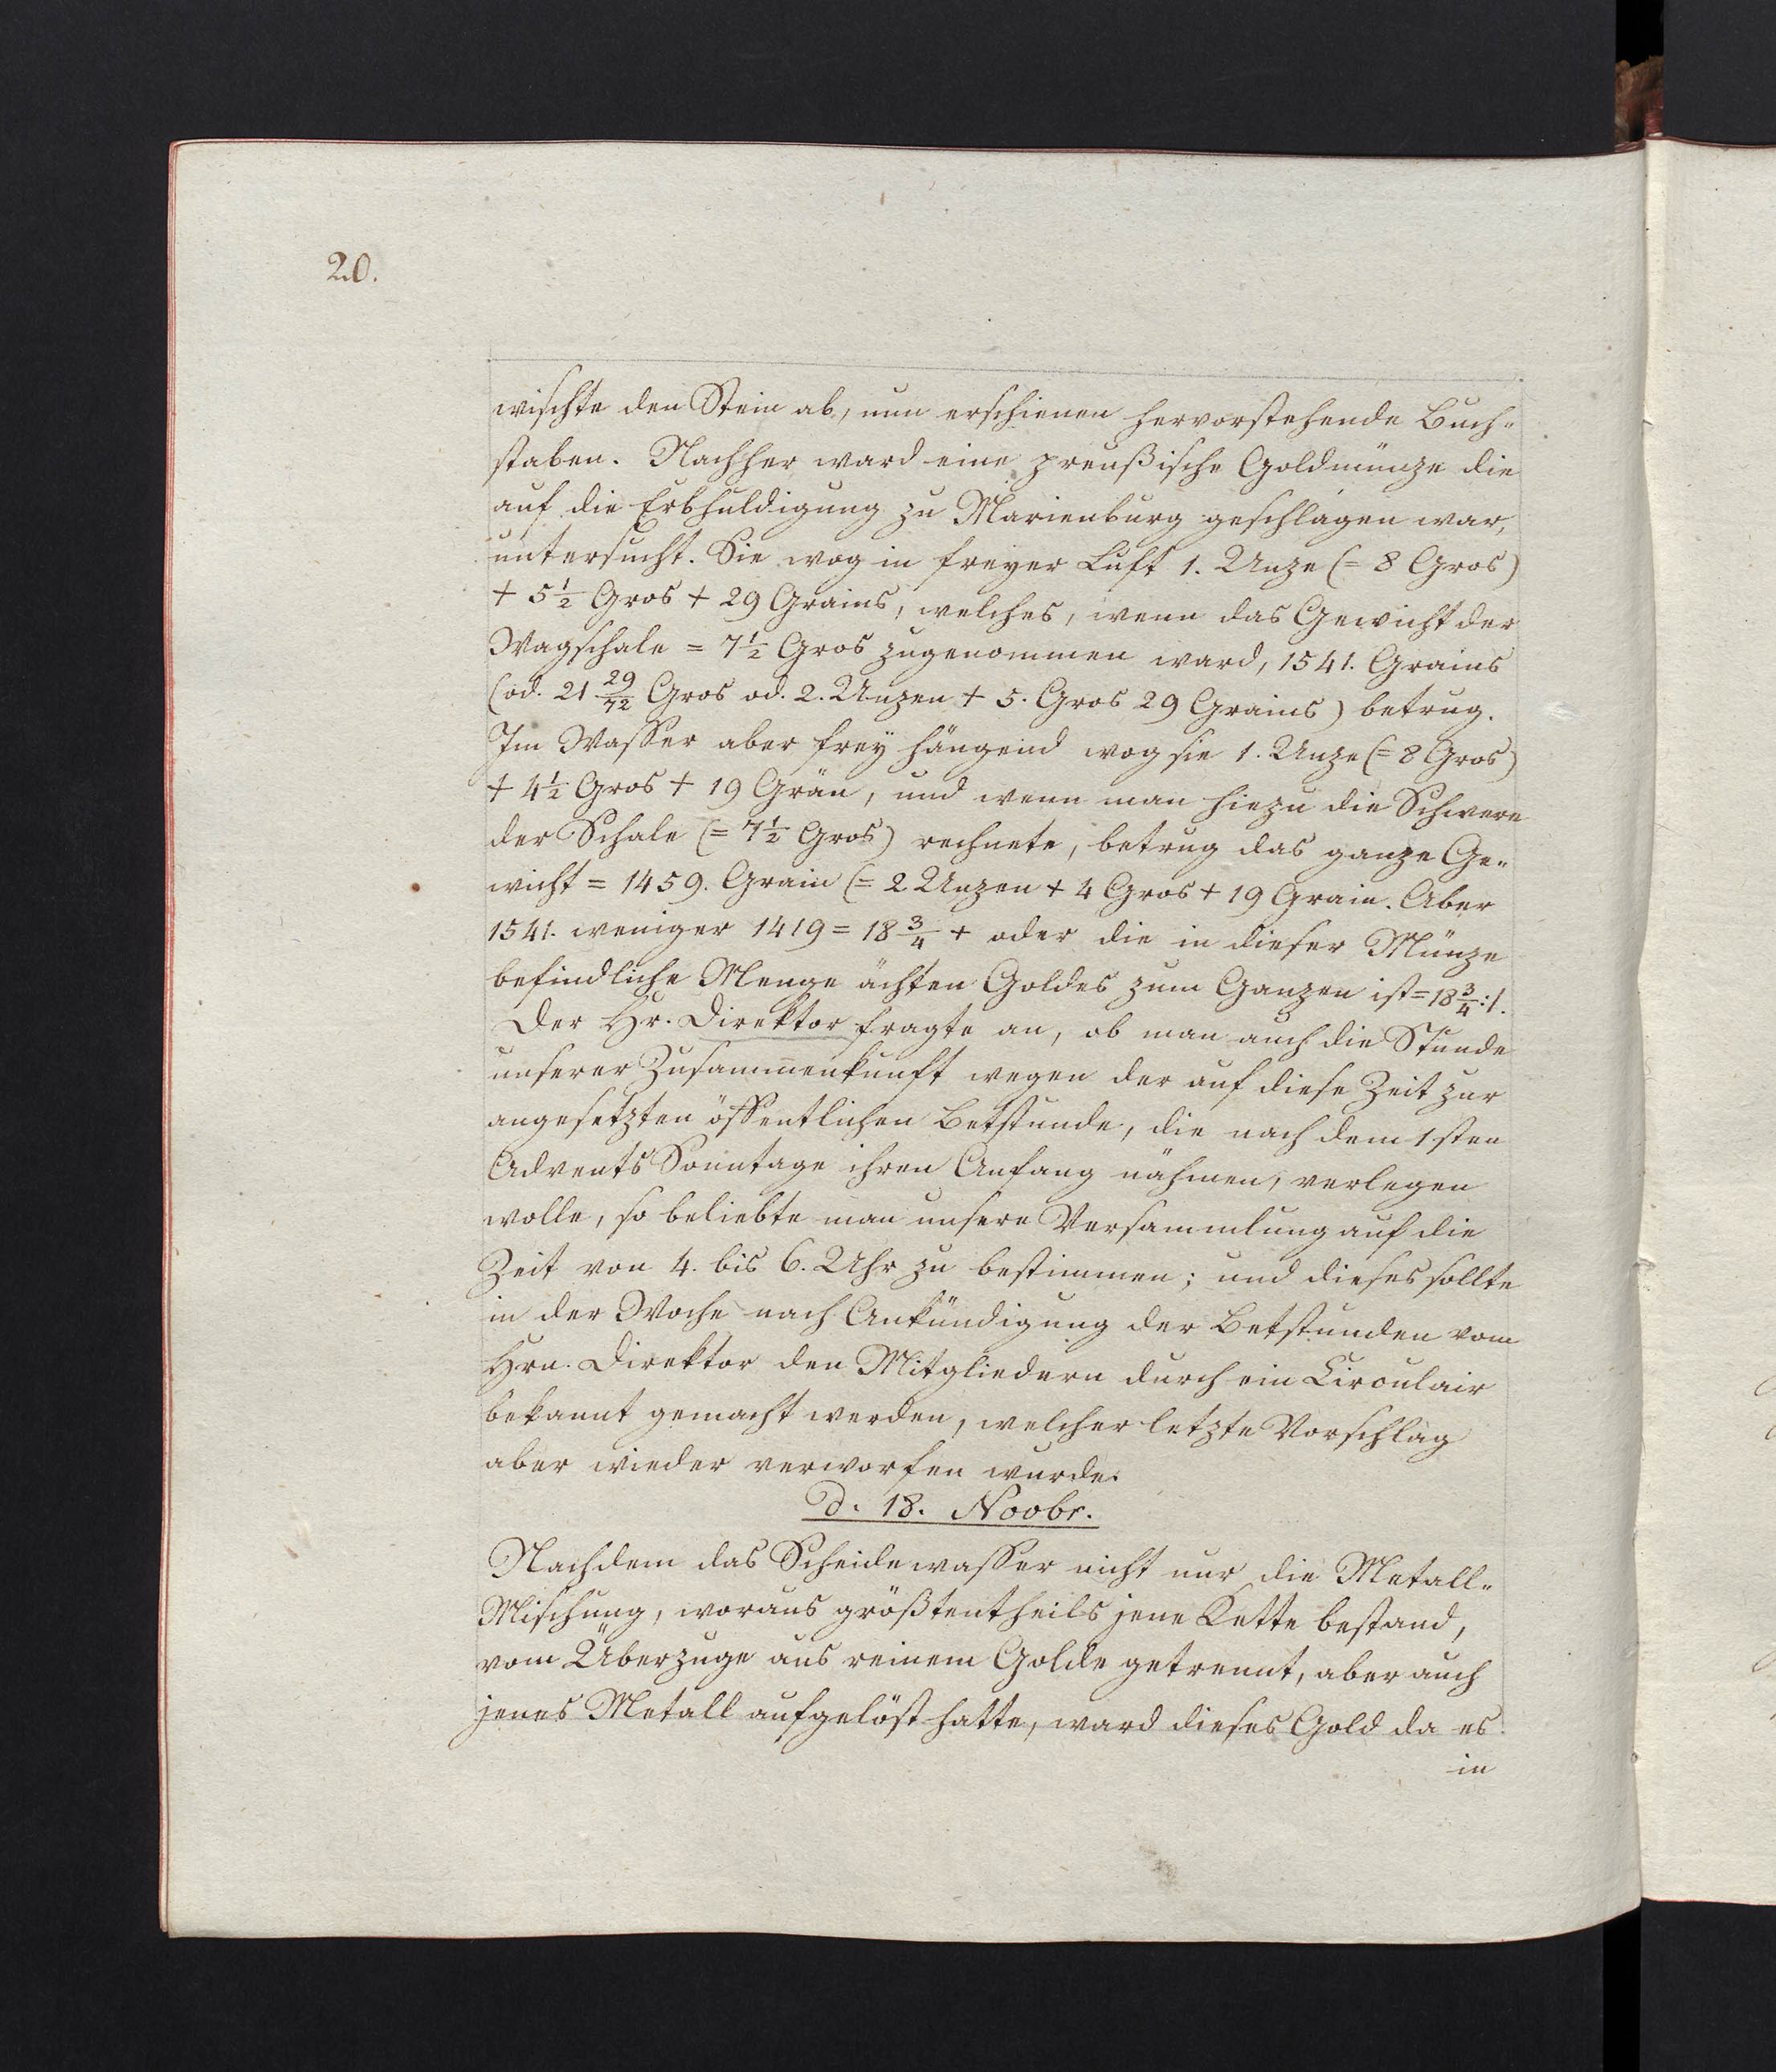 20.
wischte den Stein ab, nun erschienen hervorstehende Buch-
staben. Nachher ward eine preußische Goldmünze die
auf die Erbhuldigung zu Marienburg geschlagen war,
untersucht. Sie wog in freyer Luft 1. Unze (= 8 Gros)
+ 5½ Gros + 29 Grains, welches, wenn das Gewicht der
Wagschale = 7½ Gros zugenommen ward, 1541. Grains
(od. 21 29/72 Gros od. 2. Unzen + 5. Gros 29 Grains) betrug.
Im Wasser aber frey hängend wog sie 1. Unze (= 8 Gros)
+ 4½ Gros + 19 Grän, und wenn man hiezu die Schwere
der Schale (= 7½ Gros) rechnete, betrug das ganze Ge-
wicht = 1459. Grain (= 2 Unzen + 4 Gros + 19 Grain. Aber
1541. weniger 1419 = 18 3/4 + oder die in dieser Münze
befindliche Menge ächten Goldes zum Ganzen ist = 18 3/4 : 1.
Der Hr. Direktor fragte an, ob man auch die Stunde
unserer Zusammenkunft wegen der auf diese Zeit zur
angesetzten öffentlichen Betstunde, die nach dem 1sten
Advents Sonntage ihren Anfang nähmen, verlegen
wolle, so beliebte man unsere Versammlung auf die
Zeit von 4. bis 6. Uhr zu bestimmen; und dieses sollte
in der Woche nach Ankündigung der Betstunden vom
Hrn. Direktor den Mitgliedern durch ein Circulair
bekannt gemacht werden, welcher letzte Vorschlag
aber wieder verworfen wurde.
d. 18. Novbr.
Nachdem das Scheidewasser nicht nur die Metall-
Mischung, woraus größtentheils jene Kette bestand,
vom Überzuge aus reinem Golde getrennt, aber auch
jenes Metall aufgelöst hatte, ward dieses Gold da es
in